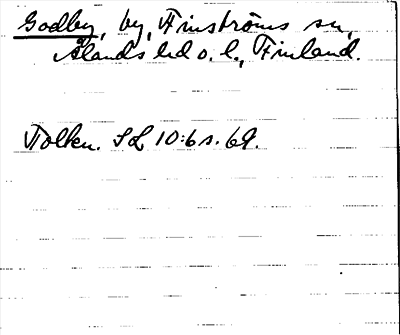 Godby, by, Finströms sn,
Ålands hd o. l., Finland.
Tolkn. SL 10:6 s. 69.